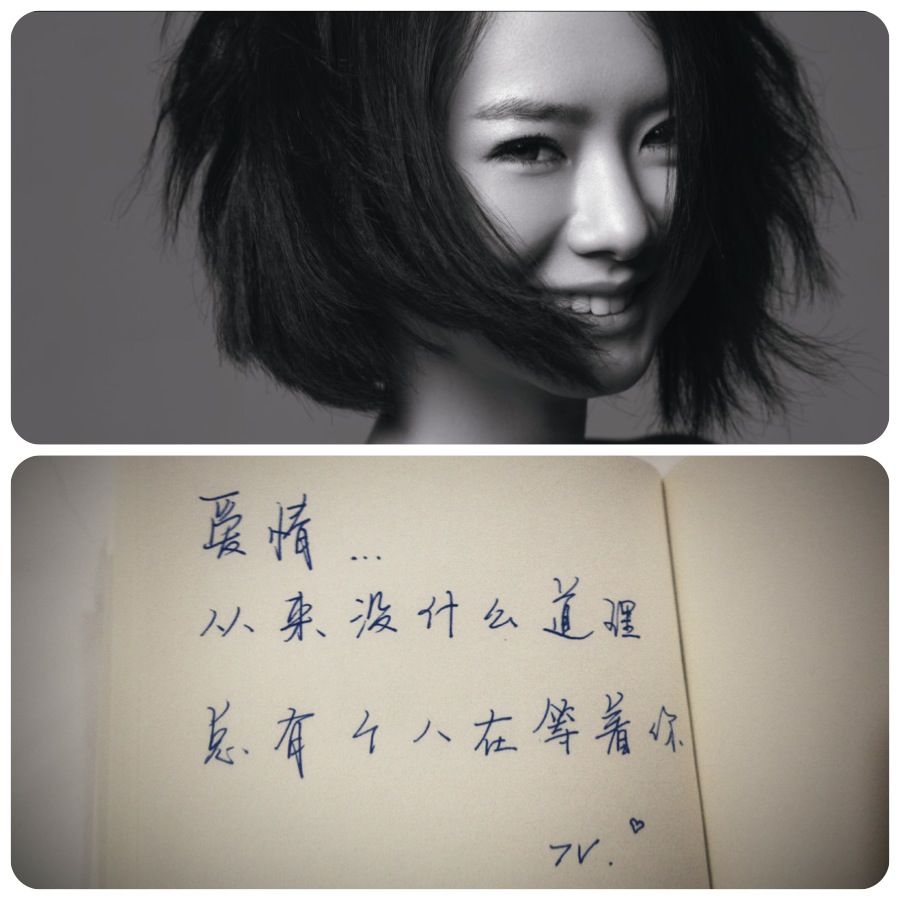 爱情...
从来没什么道理
总有个人在等着你